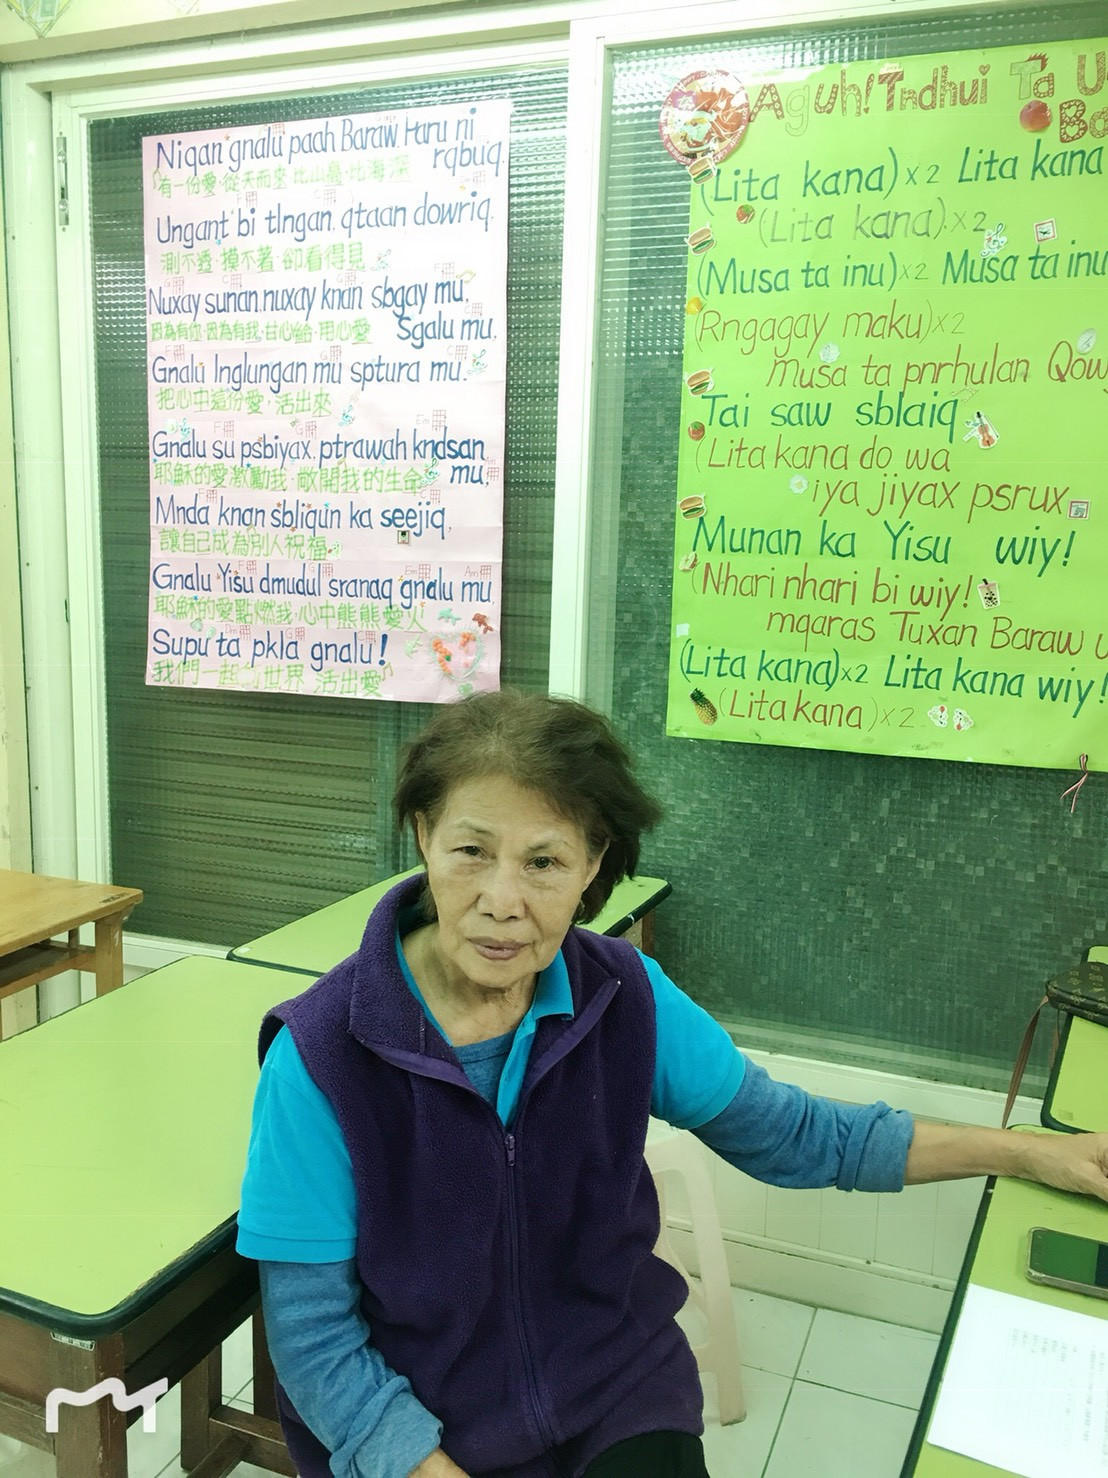 Niqan gnalu paah Baraw. Paru ni
rqbuq.
有一份愛·從天而來·比山高·比海深
Ungant bi tlngan. qtaan dowriq.
測不透·摸不著·卻看得見
Nuxay sunan.nuxay knan sbgay mu.
Sgalu mu.
因為有你·因為有我·甘心給·用心愛
Gnalu lnglungan mu sptura mu.
把心中這份愛·活出來
Gnalu su psbiyax. ptrawah kndsan
mu.
耶穌的愛激勵我·敞開我的生命
Mnda knan sbliqun ka seejiq.
讓自己成為別人祝福
Gnalu Yisu dmudul sranaq gnalu mu.
耶穌的愛點燃我·心中熊熊愛火
Supu ta pkla gnalu!
我們一起向世界 活出愛
Aguh! Tndhui Ta U
Ba
(Lita kana)×2 Lita kana
(Lita kana).×2
(Musa ta inu)×2 Musa ta inu
(Rngagay maku)×2
musa ta pnrhulan Qow
Tai saw sblaiq
(Lita kana do wa
iya jiyax psrux.
Munan ka Yisu wiy!
(Nhari nhari bi wiy!
mqaras Tuxan Baraw u
(Lita kana)×2 Lita kana wiy!
(Lita kana)×2